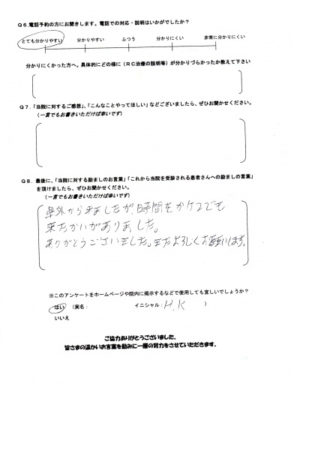 Q6.電話予約の方にお聞きします。電話での対応・説明はいかがでしたか?
とても分かりやすい 分かりやすい ふつう 分かりにくい 非常に分かりにくい
分かりにくかった方へ、具体的にどの様に(RC治療の説明等)が分かりづらかったか教えて下さい
Q7.「当院に対するご感想」、「こんなことやってほしい」などございましたら、ぜひお聞かせください。
(一言でもお書きいただければ幸いです)
Q8.最後に、「当院に対する励ましのお言葉」「これから当院を受診される患者さんへの励ましの言葉」
を頂けましたら、ぜひお聞かせください。
(一言でもお書きいただければ幸いです)
県外から来ましたが時間をかけてでも
来たかいがありました。
ありがとうございました。またよろしくお願いします。
※このアンケートをホームページや院内に掲示するなどで使用しても宜しいでしょうか?
はい (実名: イニシャル: H K )
いいえ
ご協力ありがとうございました。
皆さまの温かいお言葉を励みに一層の努力をさせていただきます。